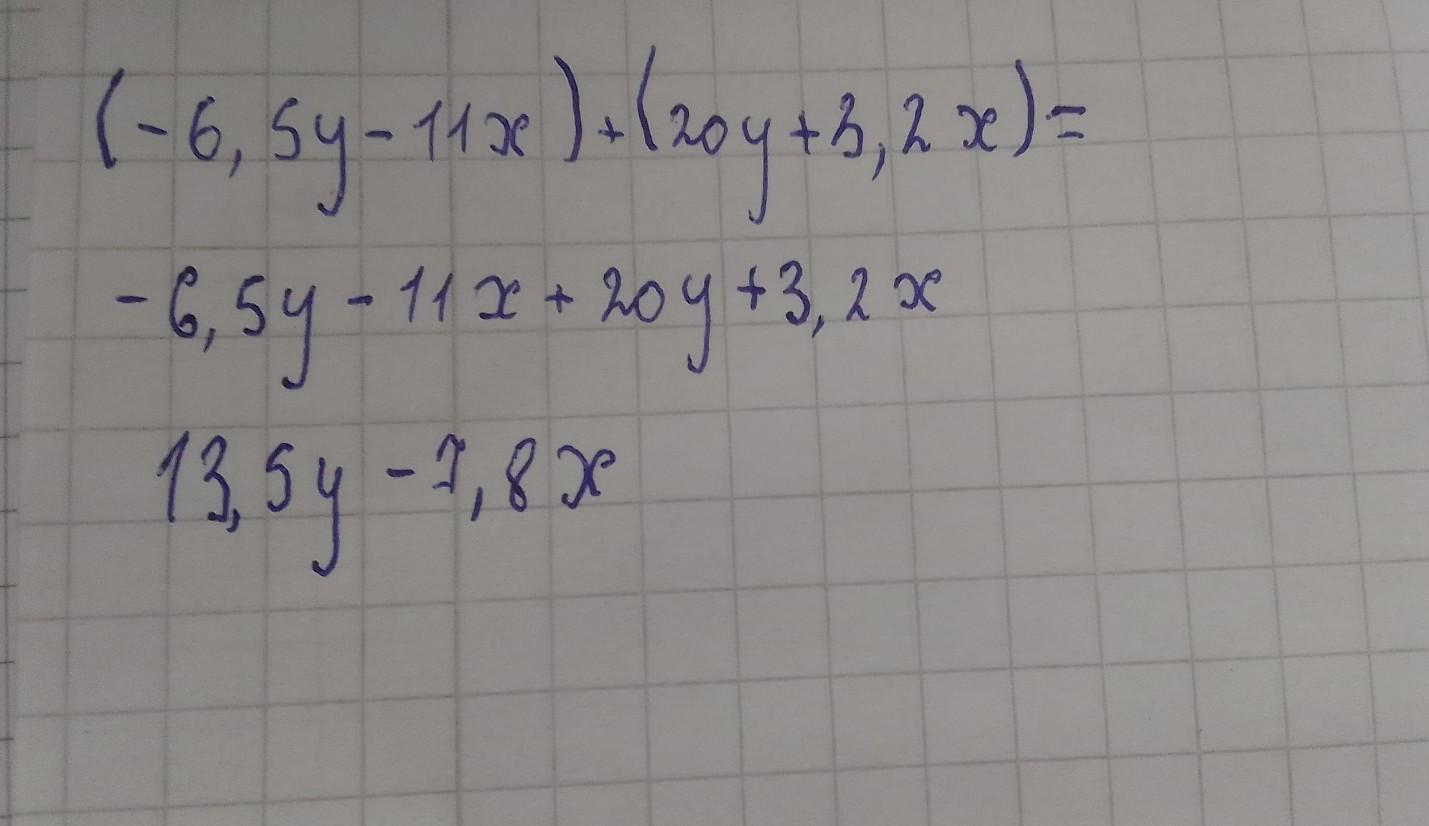 (-6,5y-11x)+(20y+3,2x)=
-6,5y-11x+20y+3,2x
13,5y-7,8x